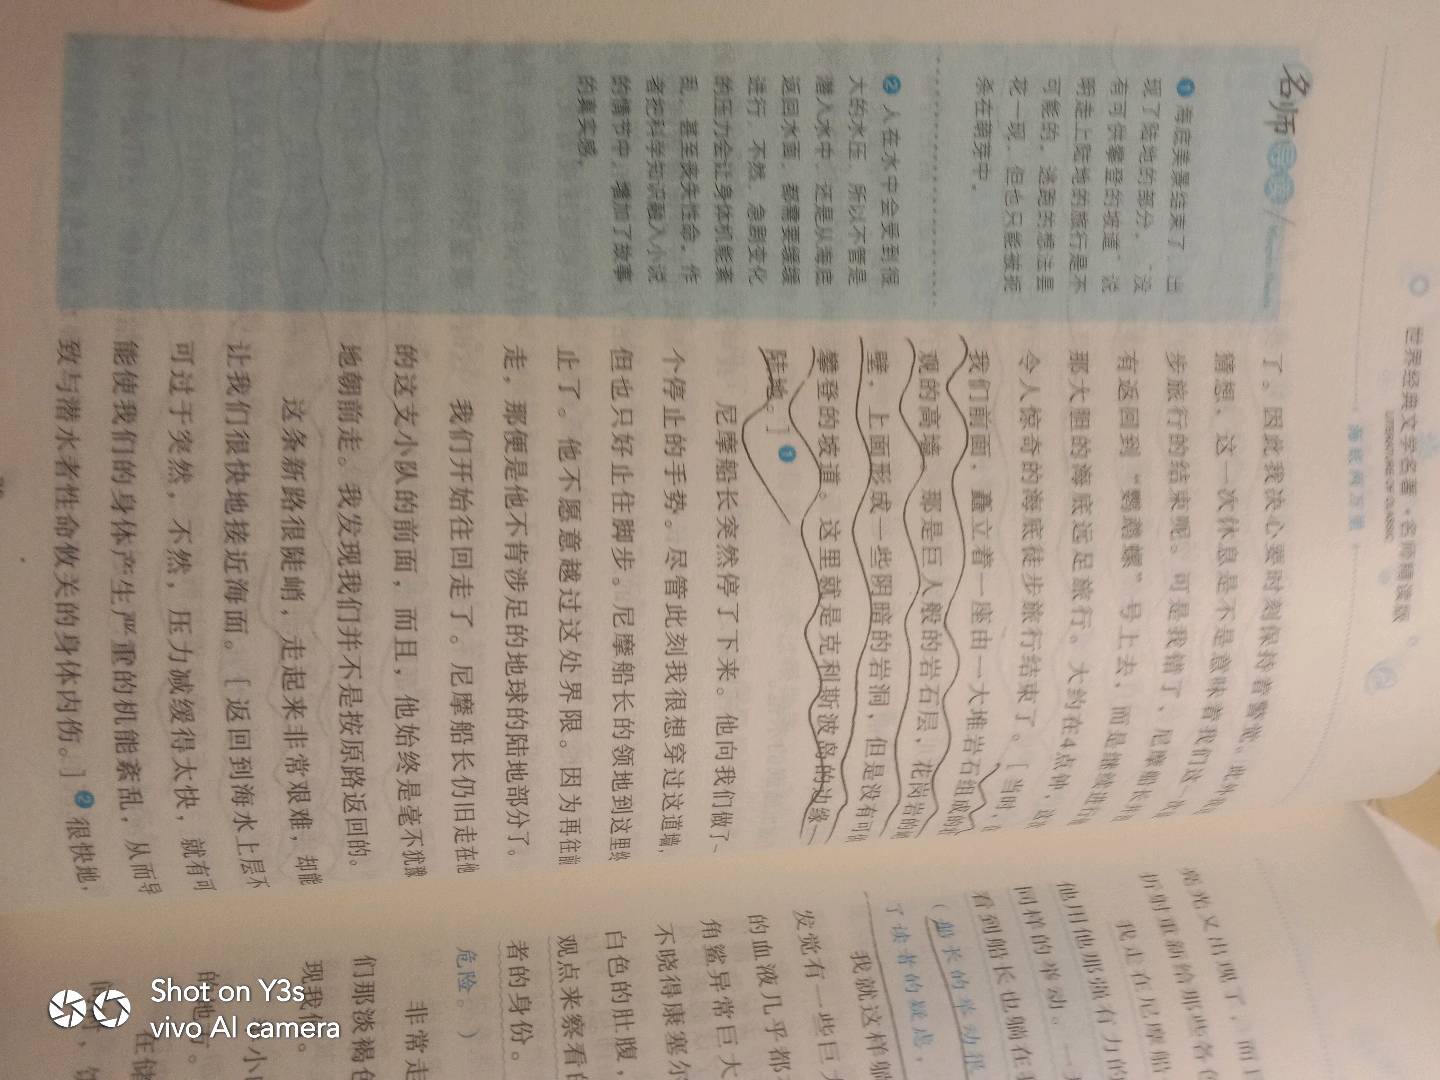 世界经典文学名著·名师精读版
LITERATURE OF CLASSIC
海底两万里
名师导读
❶ 海底美景结束了，出
现了陆地的部分。“没
有可供攀登的坡道”说
明走上陆地的旅行是不
可能的。逃跑的想法昙
花一现，但也只能被扼
杀在萌芽中。
❷ 人在水中会受到很
大的水压，所以不管是
潜入水中，还是从海底
返回水面，都需要缓缓
进行，不然，急剧变化
的压力会让身体机能紊
乱，甚至丧失性命。作
者把科学知识融入小说
的情节中，增加了故事
的真实感。
了。因此我决心要时刻保持着警觉。此外我
猜想，这一次休息是不是意味着我们这一次
步旅行的结束呢。可是我错了，尼摩船长
有返回到“鹦鹉螺”号上去，而是继续进行
那大胆的海底远足旅行。大约在4点钟，这
令人惊奇的海底徒步旅行结束了。［当时，在
我们前面，矗立着一座由一大堆岩石组成的
观的高墙，那是巨人般的岩石层，花岗岩的
壁，上面形成一些阴暗的岩洞，但是没有可
攀登的坡道。这里就是克利斯波岛的边缘—
陆地。］❶
尼摩船长突然停了下来。他向我们做了一
个停止的手势。尽管此刻我很想穿过这道墙，
但也只好止住脚步。尼摩船长的领地到这里终
止了。他不愿意越过这处界限。因为再往前
走，那便是他不肯涉足的地球的陆地部分了。
我们开始往回走了。尼摩船长仍旧走在他
的这支小队的前面，而且，他始终是毫不犹豫
地朝前走。我发现我们并不是按原路返回的。
这条新路很陡峭，走起来非常艰难，却能
让我们很快地接近海面。［返回到海水上层不
可过于突然，不然，压力减缓得太快，就有可
能使我们的身体产生严重的机能紊乱，从而导
致与潜水者性命攸关的身体内伤。］❷很快地，
亮光又出现了，而且
折射重新给那些各
我走在尼摩船
他用他那强有力的
同样的举动。一
看到船长也躺在我
（船长的举动很
了读者的疑虑，
我就这样躺
发觉有一些巨大
的血液几乎都
角鲨异常巨大
不晓得康塞尔
白色的肚腹，
观点来察看
者的身份。
危险。）
非常走
们那淡褐色
现我们。
小
的地方。
在储
Shot on Y3s
vivo AI camera